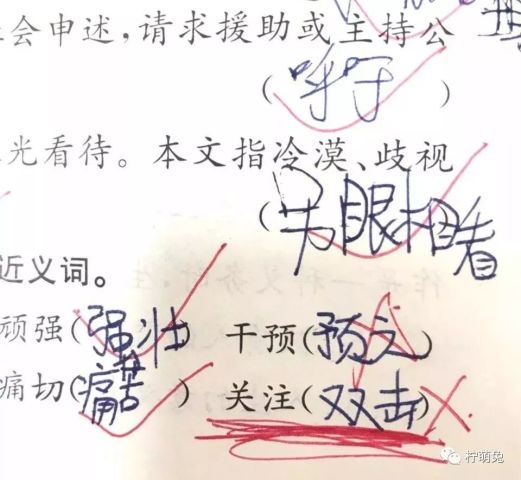 会申述,请求援助或主持公
(呼吁)
光看待。本文指冷漠、歧视
(另眼相看
近义词。
顽强(强壮) 干预(预文)
痛切(痛苦) 关注(双击)
柠萌兔